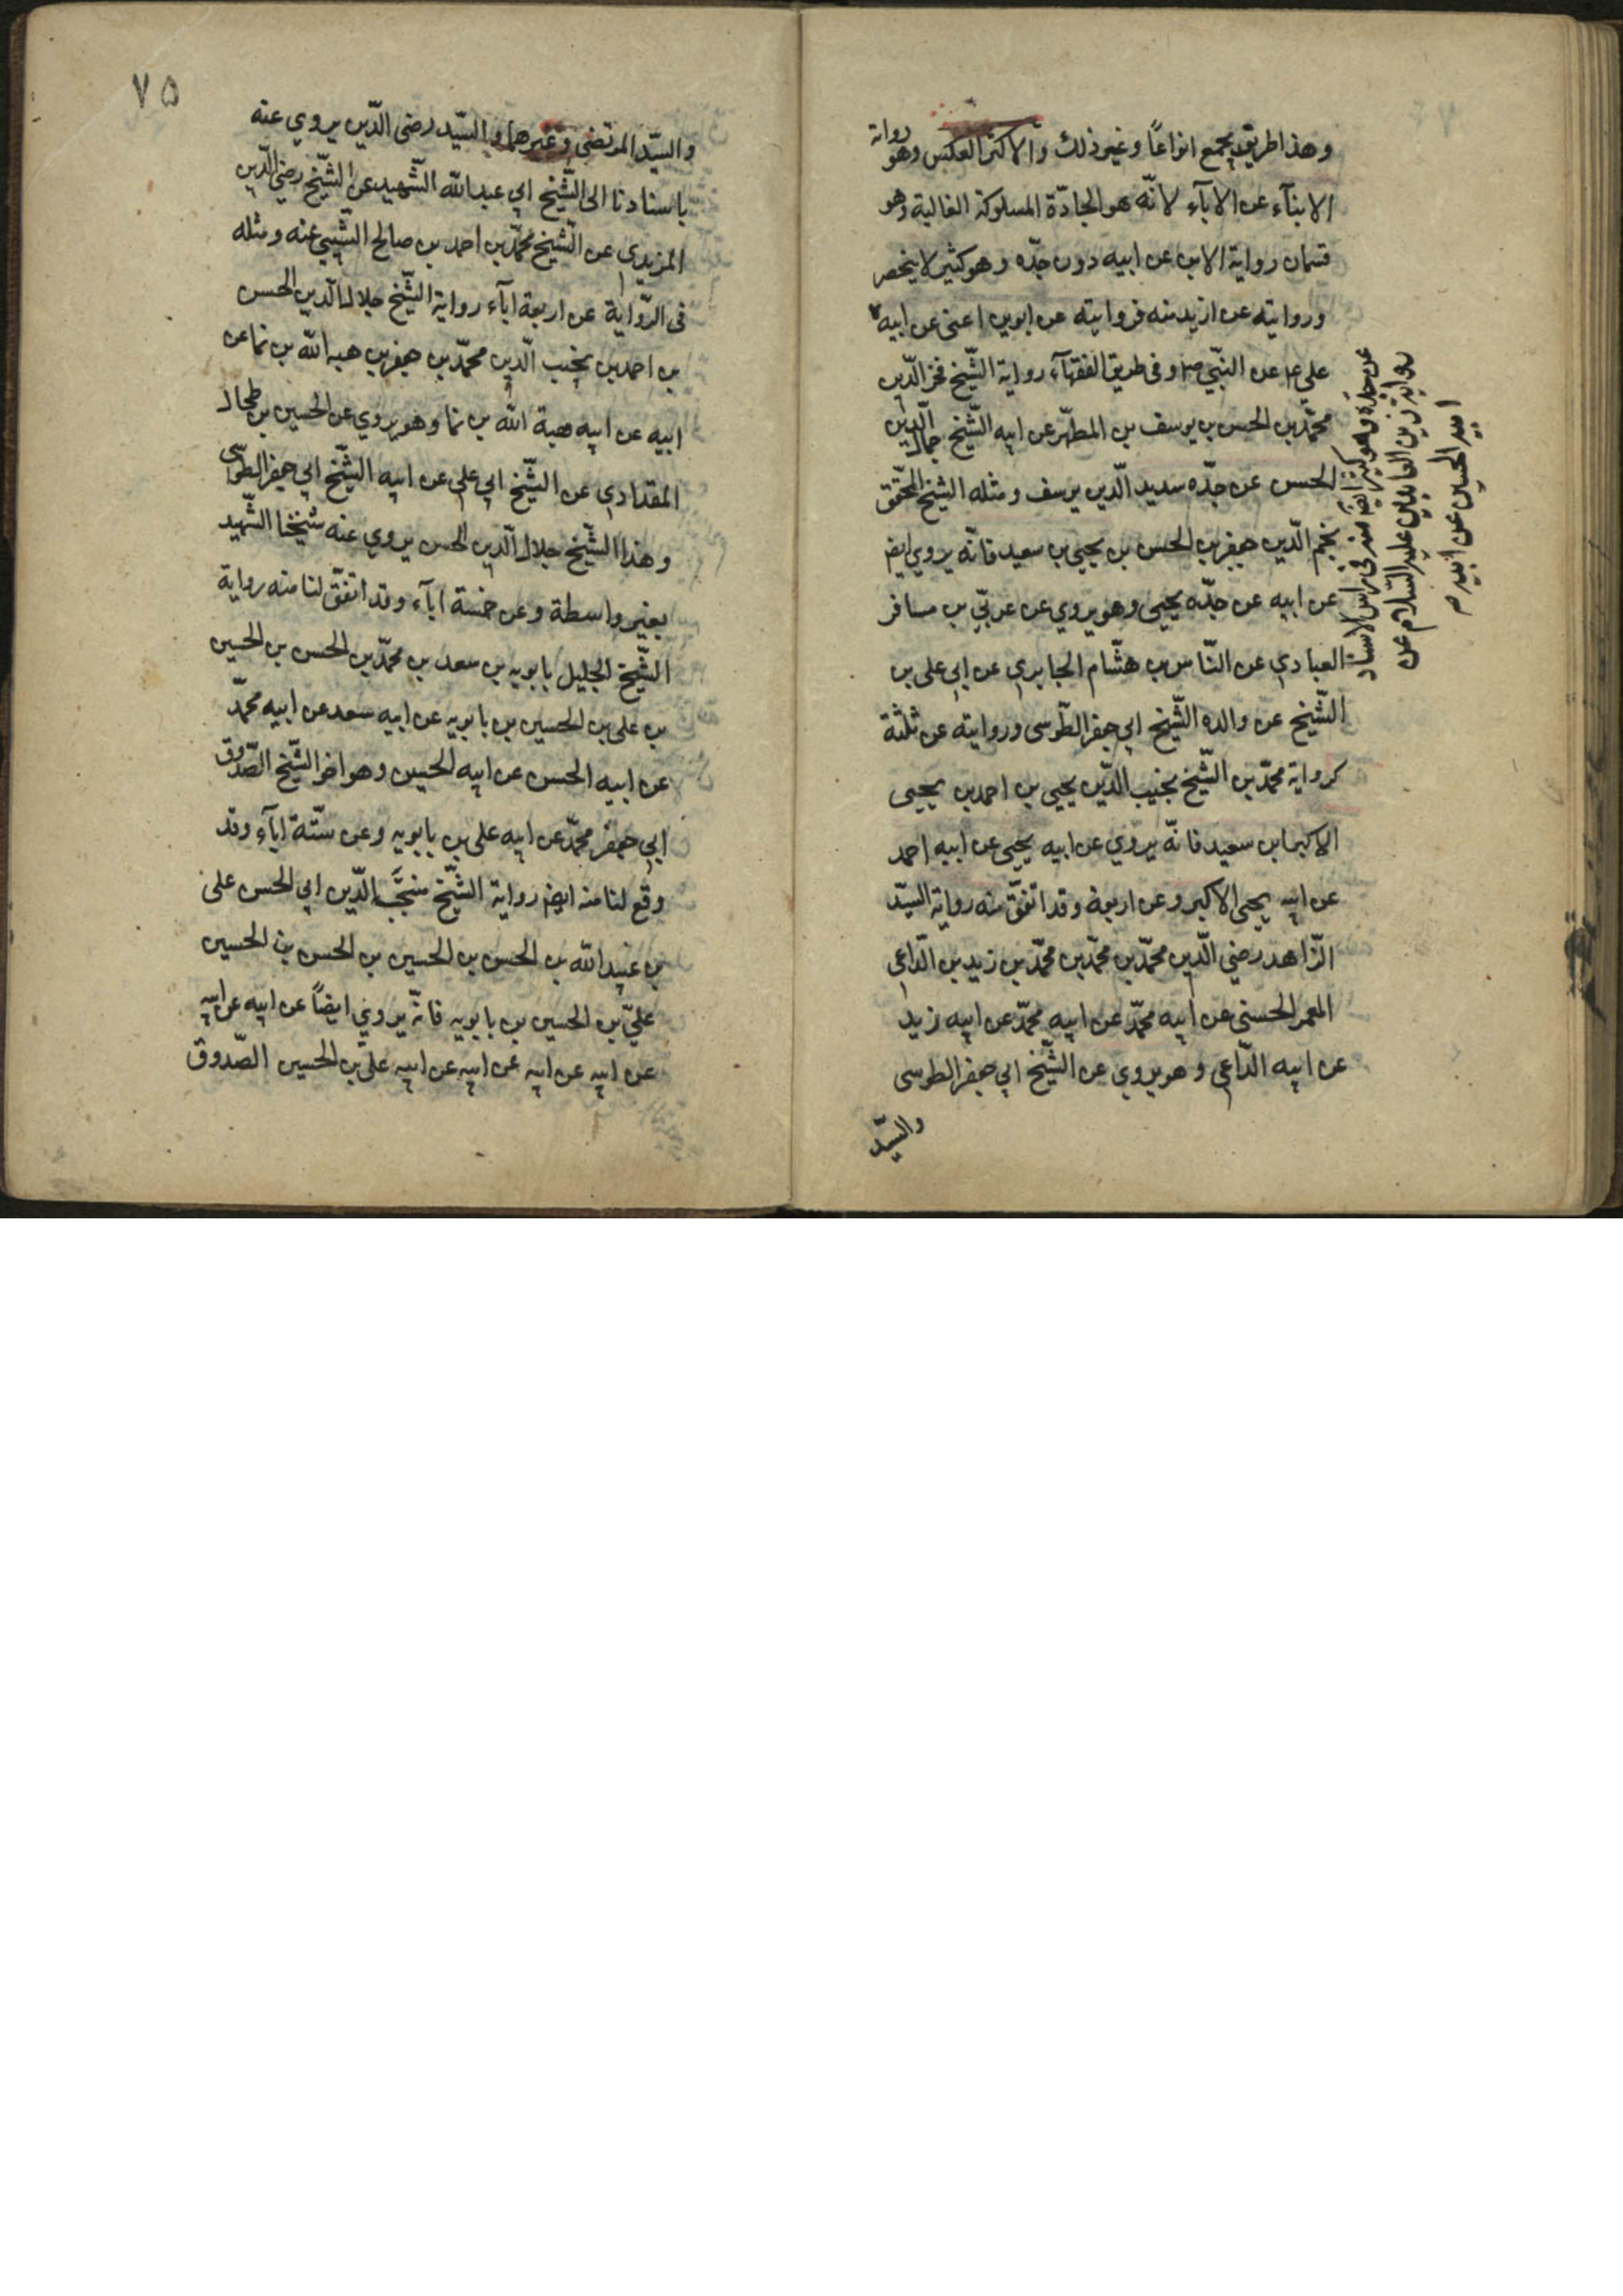 وهذا طريق يجمع انواعًا وغير ذلك والاكثر العكس وهو رواية
الابنآء عن الآباء لانّه هو الجادّة المسلوكة الغالبة وهو
قسمان رواية الابن عن ابيه دون جدّه وهو كثير لا ينحصر
وروايته عن ازيد منه فروايته عن ابوين اعنى عن ابيه
عن جدّه وهو كثير ايضا منه فى راس الاسناد
رواية زين العابدين عليه السلام عن
ابيه الحسين عن ابيه
علي ع عن النّبي ص وفى طريق الفقهآء رواية الشّيخ فخر الدّين
محمّد بن الحسن بن يوسف بن المطهّر عن ابيه الشّيخ جمال الدّين
الحسن عن جدّه سديد الدّين يوسف ومثله الشيخ المحقّق
نجم الدّين جعفر بن الحسن بن يحيى بن سعيد فانّه يروي ايضا
عن ابيه عن جدّه يحيى وهو يروي عن عربيّ بن مسافر
العبادي عن الياس بن هشّام الحايري عن ابي على بن
الشّيخ عن والده الشّيخ ابي جعفر الطّوسى وروايته عن ثلثة
كرواية محمّد بن الشّيخ نجيب الدّين يحيى بن احمد بن يحيى
الاكبر ابن سعيد فانّه يروي عن ابيه يحيى عن ابيه احمد
عن ابيه يحيى الاكبر وعن اربعة وقد اتّفق منه رواية السيّد
الزّاهد رضي الدّين محمّد بن محمّد بن محمّد بن زيد بن الدّاعى
المعمر الحسنى عن ابيه محمّد عن ابيه محمّد عن ابيه زيد
عن ابيه الدّاعى وهو يروي عن الشّيخ ابي جعفر الطوسى
والسيّد
٧٥
والسيّد المرتضى وغيرهما والسيّد رضى الدّين يروي عنه
باسنادنا الى الشّيخ ابي عبد الله الشّهيد عن الشّيخ رضي الدّين
المزيدي عن الشّيخ محمّد بن احمد بن صالح السّيبي عنه ومثله
فى الرّواية عن اربعة آباء رواية الشّيخ جلال الدّين الحسن
بن احمد بن نجيب الدّين محمّد بن جعفر بن هبة الله بن نما عن
ابيه عن ابيه هبة الله بن نما وهو يروي عن الحسين بن طحال
المقدادي عن الشّيخ ابي على عن ابيه الشّيخ ابي جعفر الطّوسى
وهذا الشّيخ جلال الدّين الحسن يروي عنه شيخنا الشّهيد
بغير واسطة وعن خمسة ابآء وقد اتّفق لنا منه رواية
الشّيخ الجليل بابويه بن سعد بن محمّد بن الحسن بن الحسين
بن على بن الحسين بن بابويه عن ابيه سعد عن ابيه محمّد
عن ابيه الحسن عن ابيه الحسين وهو اخو الشّيخ الصّدوق
ابي جعفر محمّد عن ابيه على بن بابويه وعن ستّة ابآء وقد
وقع لنا منه ايضا رواية الشّيخ منتجب الدّين ابي الحسن على
بن عبيد الله بن الحسن بن الحسين بن الحسن بن الحسين
عليّ بن الحسين بن بابويه فانّه يروي ايضًا عن ابيه عن ابيه
عن ابيه عن ابيه عن ابيه عن ابيه على بن الحسين الصّدوق